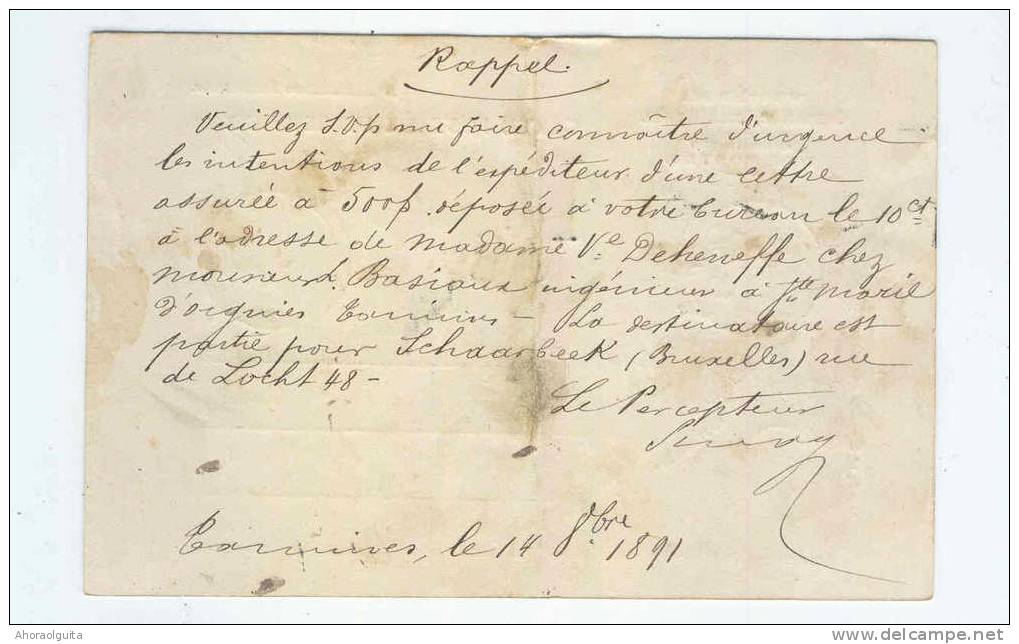 Rappel.
Veuillez S.V.p me faire connoître d'urgence
les intentions de l'expéditeur d'une lettre
assurée à 500f. déposée à votre bureau le 10 ct
à l'adresse de Madame Ve. Deheneffe chez
Basiaux ingénieur à Ste Marie
d'oignies Tamines - La destinataire est
partie pour Schaarbeek (Bruxelles) rue
de Locht 48 -
Le Percepteur
Tamines, le 14 8bre 1891
Ahoraolguita
www.delcampe.net